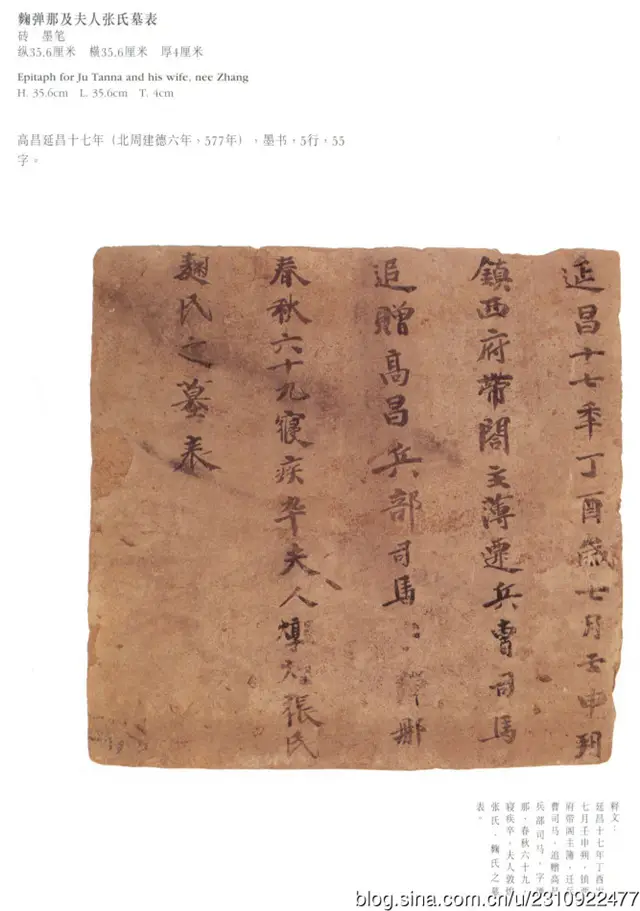 麴弹那及夫人张氏墓表
砖 墨笔
纵35.6厘米 横35.6厘米 厚4厘米
Epitaph for Ju Tanna and his wife, nee Zhang
H. 35.6cm L. 35.6cm T. 4cm
高昌延昌十七年（北周建德六年、577年），墨书，5行，55
字。
延昌十七年丁酉歲七月壬申朔
鎮西府帶閤主薄遷兵曹司馬
追贈高昌兵部司馬 彈那
春秋六十九寢疾卒夫人燉煌張氏
麹氏之墓表
释文：
延昌十七年丁酉岁
七月壬申朔，镇西
府带阁主簿，迁兵
曹司马，追赠高昌
兵部司马，字弹
那，春秋六十九，
寝疾卒，夫人敦煌
张氏，麴氏之墓
表。
blog.sina.com.cn/u/2310922477